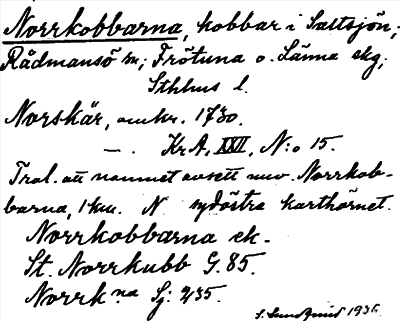 Norrkobbarna, kobbar i Saltsjön,
Rådmansö sn; Frötuna o. Länna skg,
Sthlms l.
Norskär, omkr. 1730.
— . Kr A, XXII, N:o 15.
Trol. att namnet avsett nuv. Norrkob-
barna, 1 km. N sydöstra karthörnet.
Norrkobbarna ek.
St. Norrkubb G. 85.
Norrk:na Sj: 235.
1936